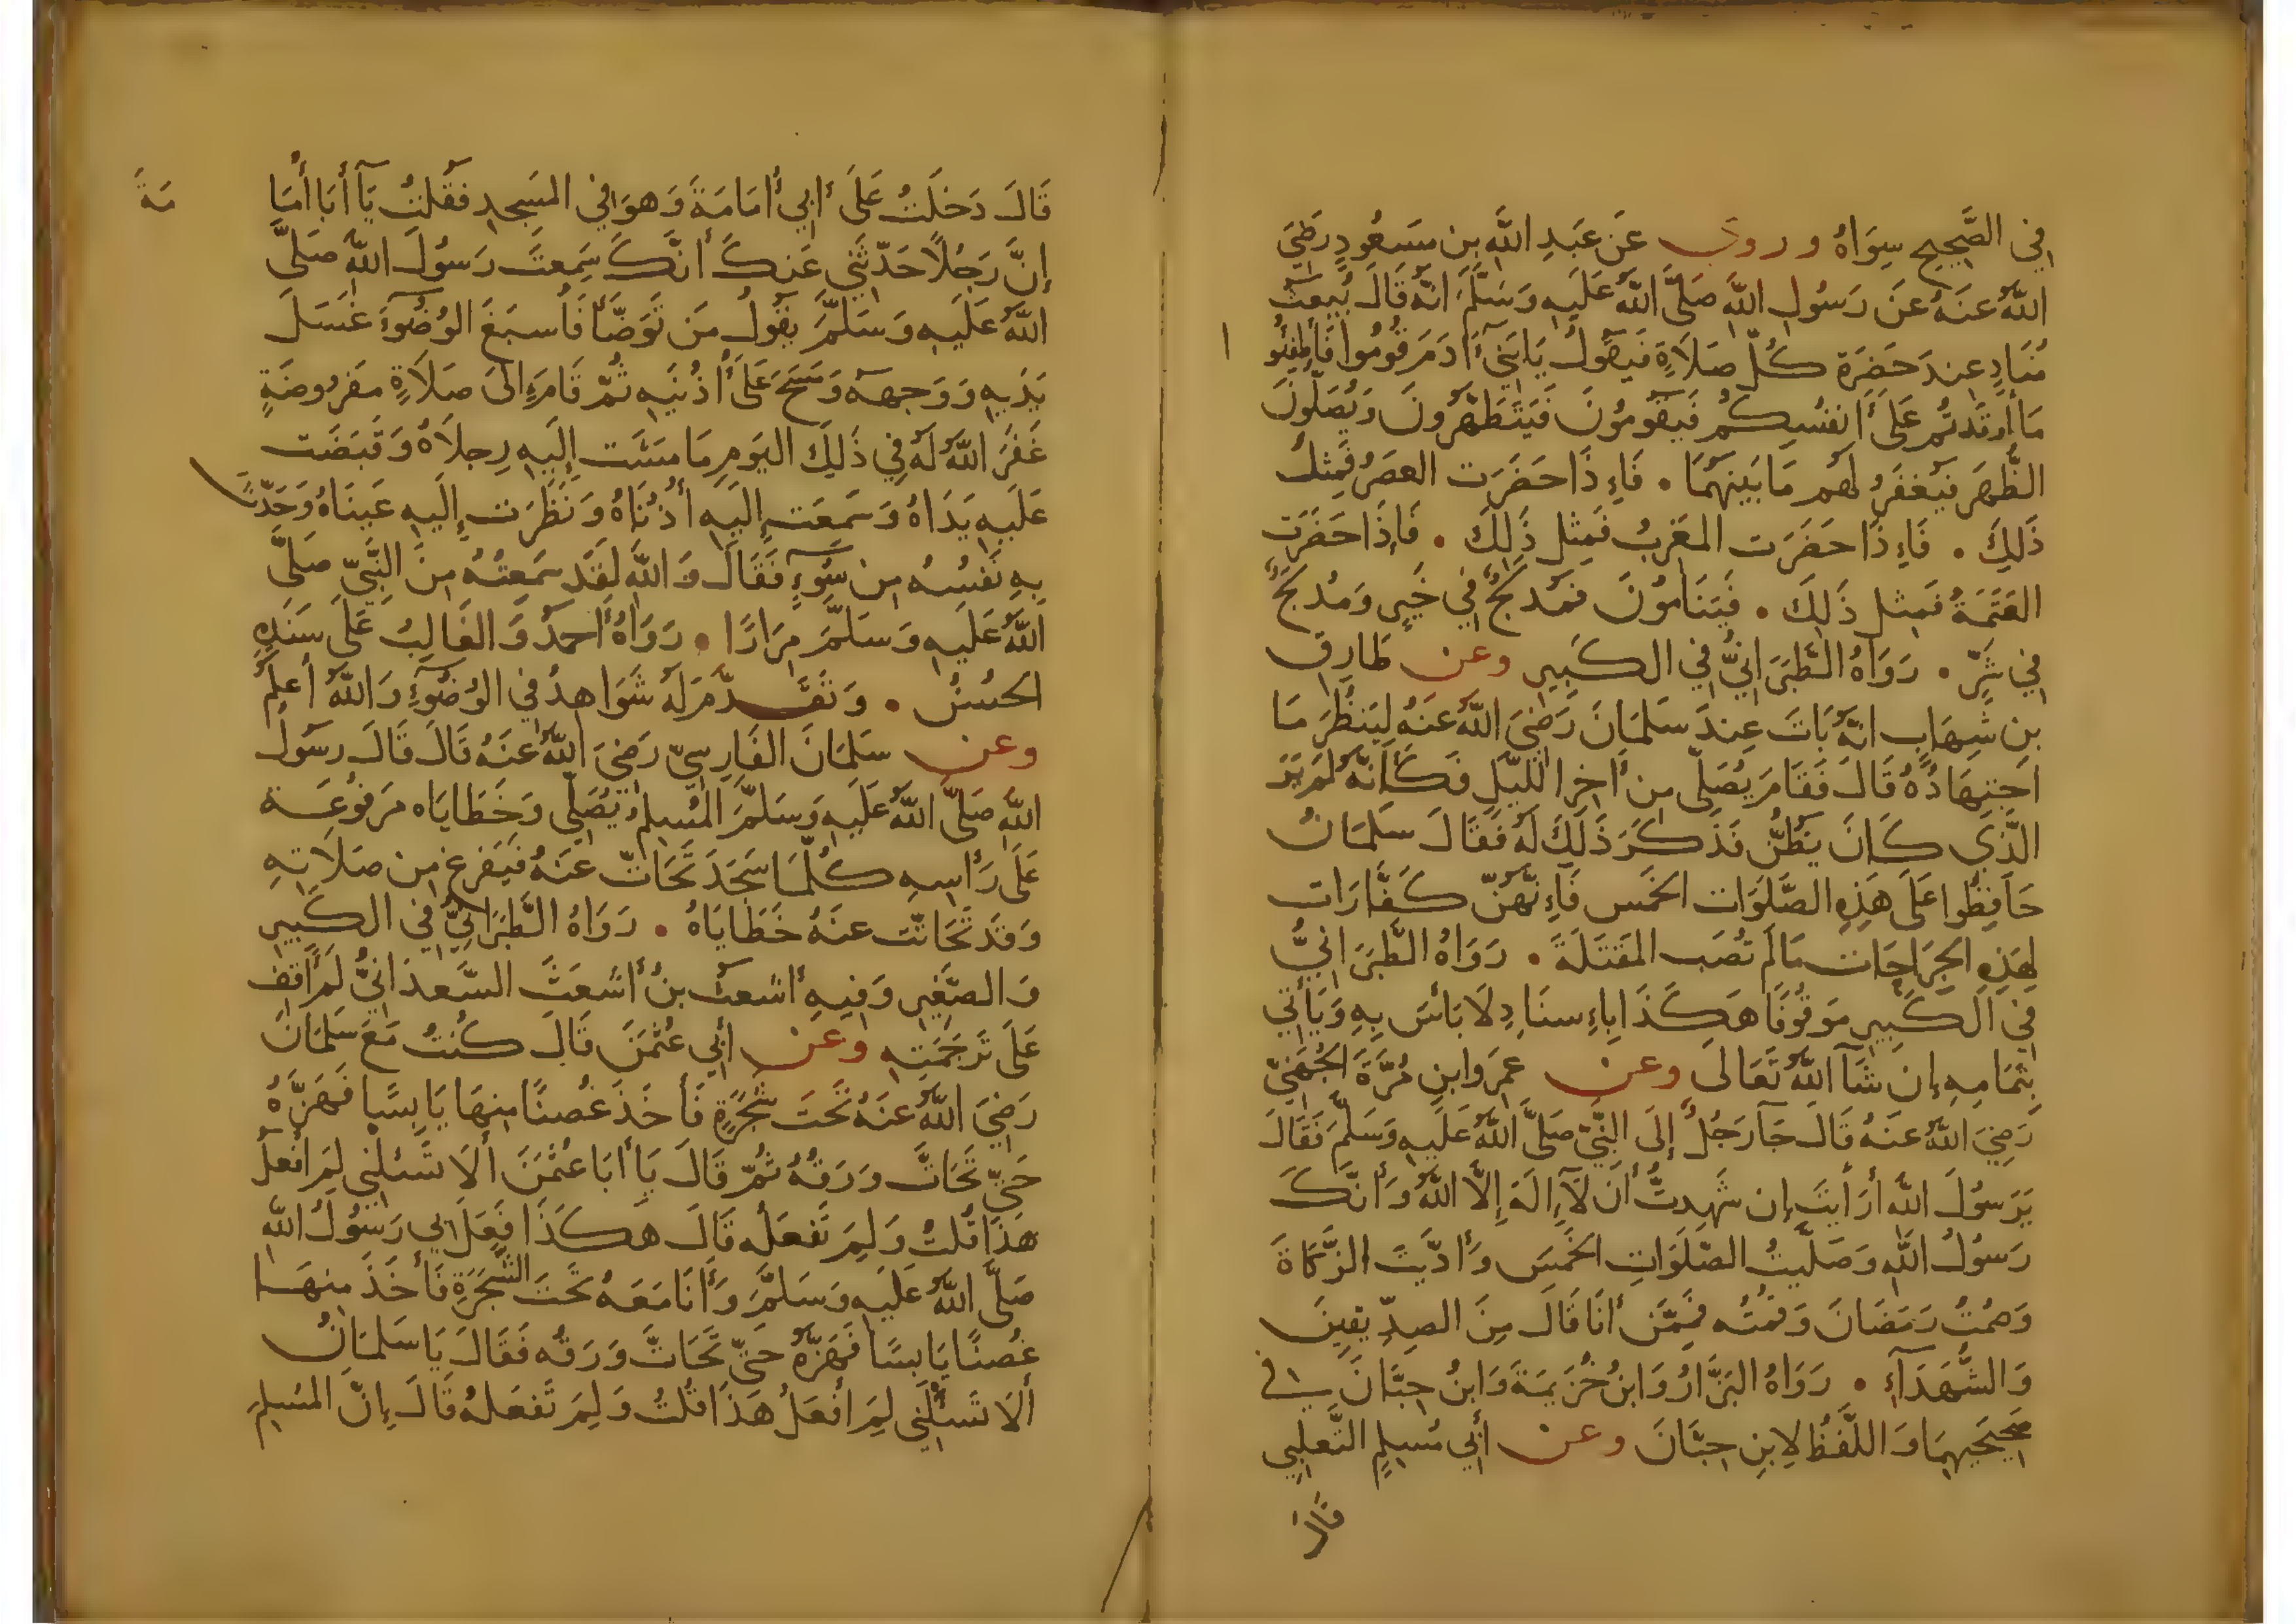 في الصَّحِيحِ سِوَاهُ وروي عَن عَبدِ اللَّهِ بنِ مَسعُودٍ رَضِيَ
اللَّهُ عَنهُ عَن رَسُولِ اللَّهِ صَلَّى اللَّهُ عَلَيهِ وَسَلَّمَ انَّهُ قَالَ يُبعَثُ
مُنَادٍ عِندَ حَضرَةِ كُلِّ صَلَاةٍ فَيَقُولُ يَا بَنِي آدَمَ قُومُوا فَأَطفِئُو ا
مَا أَوقَدتُم عَلَى أَنفُسِكُم فَيَقُومُونَ فَيَتَطَهَّرُونَ وَيُصَلُّونَ
الظُّهرَ فَيُغفَرُ لَهُم مَا بَينَهُمَا . فَإِذَا حَضَرَت العَصرُ فَمِثلُ
ذَلِكَ . فَإِذَا حَضَرَت المَغرِبُ فَمِثلِ ذَلِكَ . فَإِذَا حَضَرَتِ
العَتَمَةُ فَمِثلِ ذَلِكَ . فَيَنَامُونَ فَمُدلِجٌ فِي خَيرٍ وَمُدلِجٌ
فِي شَرٍّ . رَوَاهُ الطَّبَرَانِيُّ فِي الكَبِيرِ وعن طَارِقِ
بنِ شِهَابٍ انَّهُ بَاتَ عِندَ سَلمَانَ رَضِيَ اللَّهُ عَنهُ لِيَنظُرَ مَا
اجتِهَادُهُ قَالَ فَقَامَ يُصَلِّي مِن أخِرِ اللَّيلِ فَكَأَنَّهُ لَم يَرَ
الَّذِي كَانَ يَظُنُّ فَذَكَرَ ذَلِكَ لَهُ فَقَالَ سَلمَانُ
حَافِظُوا عَلَى هَذِهِ الصَّلَوَات الخَمس فَإِنَّهُنَّ كَفَّارَات
لِهَذِهِ الجِرَاحَات مَالَم تُصَب المَقتَلَةَ . رَوَاهُ الطَّبَرَانِيُّ
فِي الكَبِيرِ مَوقُوفًا هَكَذَا بِإِسنَادِ لَا بَأسَ بِهِ وَيَأتِي
بِتَمَامِهِ إِن شَآ اللَّهُ تَعَالَى وعن عمرَو ابنِ مُرَّةَ الجُهَنِيِّ
رَضِيَ اللَّهُ عَنهُ قَالَ جَآ رَجُلٌ إِلَى النَّبِيِّ صَلَّى اللَّهُ عَلَيهِ وَسَلَّمَ فَقَالَ
يَرَسُولَ اللَّهِ أَرَأَيتَ إِن شَهِدتُّ أَن لَآ إِلَهَ إِلَّا اللَّهُ وَأَنَّكَ
رَسُولُ اللَّهِ وَصَلَّيتُ الصَّلَوَاتِ الخَمسَ وَأَدَّيتُ الزَّكَاةَ
وَصُمتُ رَمَضَانَ وَقُمتُه فَمِمَّن أَنَا قَالَ مِنَ الصِدِّيقِينَ
وَالشُّهَدَآءِ . رَوَاهُ البَزَّارُ وَابنُ خُزَيمَةَ وَابنُ حِبَّانَ في
صَحِيحَيهِمَا وَاللَّفظُ لِابنِ حِبَّانَ وعن أَبِي مُسلِمٍ التَّغلِبِي
قال
قَالَ دَخَلتُ عَلَى أَبِي أُمَامَةَ وَهوَ فِي المَسجِدِ فَقُلتُ يَآ أَبَا أُمَا مَةَ
إِنَّ رَجُلًا حَدَّثَنِي عَنكَ أَنَّكَ سَمِعتَ رَسُولَ اللَّهِ صَلَّى
اللَّهُ عَلَيهِ وَسَلَّمَ يَقُولُ مَن تَوَضَّأَ فَأَسبَغَ الوُضُوءَ غَسَلَ
يَدَيهِ وَوَجهَه وَمَسَحَ عَلَى أُذُنَيهِ ثُمَّ قَامَ إِلَى صَلَاةٍ مَفرُوضَةٍ
غَفَرَ اللَّهُ لَهُ فِي ذَلِكَ اليَومِ مَا مَشَت إِلَيهِ رِجلَاهُ وَقَبَضَت
عَلَيهِ يَدَاهُ وَسَمِعَت إِلَيهِ أُذُنَاهُ وَنَظَرَت إِلَيهِ عَينَاهُ وَحَدَّثَ
بِهِ نَفسُهُ مِن سُوءٍ فَقَالَ وَاللَّهِ لَقَد سَمِعتُهُ مِنَ النَّبِيِّ صَلَّى
اللَّهُ عَلَيهِ وَسَلَّمَ مِرَارًا . رَوَاهُ أَحمَدُ وَالغَالِبُ عَلَى سَنَدِهِ
الحُسنُ . وَتَقَدَّمَ لَهُ شَوَاهِدُ فِي الوُضُوءِ وَاللَّهُ أَعلَمُ
وعن سَلمَانَ الفَارِسِيِّ رَضِيَ اللَّهُ عَنهُ قَالَ قَالَ رَسُولُ
اللَّهِ صَلَّى اللَّهُ عَلَيهِ وَسَلَّمَ المُسلِمُ يُصَلِّي وَخَطَايَاه مَرفُوعَة
عَلَى رَأسِهِ كُلَّمَا سَجَدَ تَحَاتّ عَنهُ فَيَفرغ مِن صَلَاتِهِ
وَقَد تَحَاتَّت عَنهُ خَطَايَاهُ . رَوَاهُ الطَّبَرَانِيُّ فِي الكَبِيرِ
وَالصَّغِيرِ وَفِيهِ أَشعَثُ بنُ أَشعَثَ السَّعدَانِيُّ لَم أَقِف
عَلَى تَرجَمَتِهِ وعن أَبِي عُثمَنَ قَالَ كُنتُ مَعَ سَلمَانَ
رَضِيَ اللَّهُ عَنهُ تَحتَ شَجَرَةٍ فَأَخَذَ غُصنًا مِنهَا يَابِسًا فَهَزَّهُ
حَتَّى تَحَاتَّ وَرَقُهُ ثُمَّ قَالَ يَا أَبَا عُثمَنَ أَلَا تَسئَلُنِي لِمَ أَفعَلُ
هَذَا قُلتُ وَلِمَ تَفعَلُه قَالَ هَكَذَا فَعَلَ بِي رَسُولُ اللَّهِ
صَلَّى اللَّهُ عَلَيهِ وَسَلَّمَ وَأَنَا مَعَهُ تَحتَ الشَّجَرَةِ فَأَخَذَ مِنهَا
غُصنًا يَابِسًا فَهَزَّهُ حَتَّى تَحَاتَّ وَرَقُه فَقَالَ يَا سَلمَانُ
أَلَا تَسئَلُنِي لِمَ أَفعَلُ هَذَا قُلتُ وَلِمَ تَفعَلهُ قَالَ إِنَّ المُسلِمَ